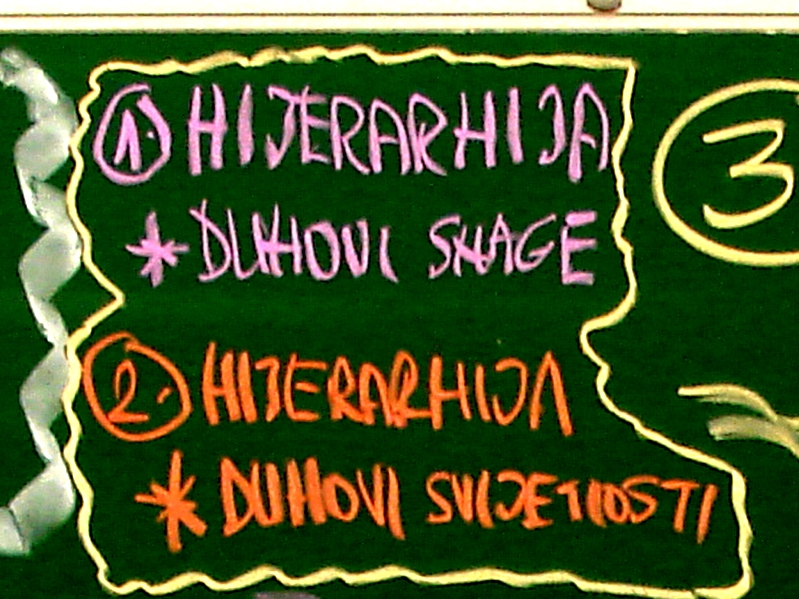 1. HIJERARHIJA
* DUHOVI SNAGE
2. HIJERARHIJA
* DUHOVI SVIJETLOSTI
3